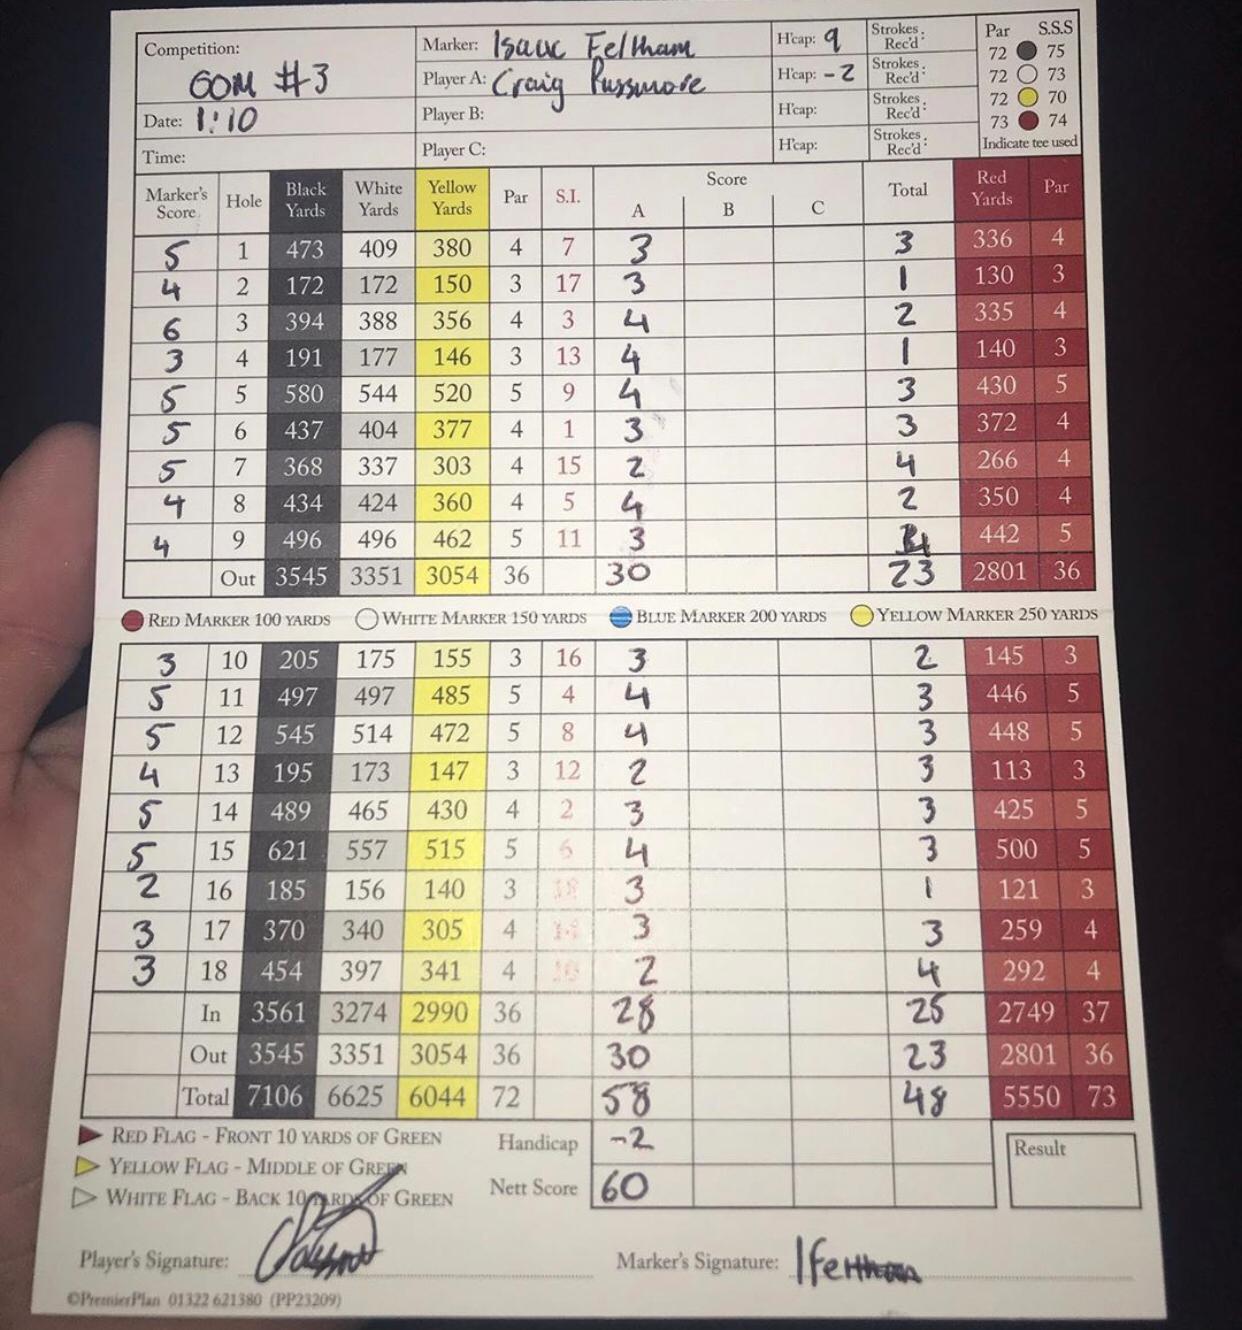 Competition: GOM #3
Date: 1:10
Time:
Marker: Isaac Feltham H'cap: 9 Strokes Rec'd:
Player A: Craig Passmore H'cap: -2 Strokes Rec'd:
Player B: H'cap: Strokes Rec'd:
Player C: H'cap: Strokes Rec'd:
Par S.S.S
72 75
72 73
72 70
73 74
Indicate tee used
Marker's Score Hole Black Yards White Yards Yellow Yards Par S.I. Score A B C Total Red Yards Par
5 1 473 409 380 4 7 3 3 336 4
4 2 172 172 150 3 17 3 1 130 3
6 3 394 388 356 4 3 4 2 335 4
3 4 191 177 146 3 13 4 1 140 3
5 5 580 544 520 5 9 4 3 430 5
5 6 437 404 377 4 1 3 3 372 4
5 7 368 337 303 4 15 2 4 266 4
4 8 434 424 360 4 5 4 2 350 4
4 9 496 496 462 5 11 3 4 442 5
Out 3545 3351 3054 36 30 23 2801 36
RED MARKER 100 YARDS WHITE MARKER 150 YARDS BLUE MARKER 200 YARDS YELLOW MARKER 250 YARDS
3 10 205 175 155 3 16 3 2 145 3
5 11 497 497 485 5 4 4 3 446 5
5 12 545 514 472 5 8 4 3 448 5
4 13 195 173 147 3 12 2 3 113 3
5 14 489 465 430 4 2 3 3 425 5
5 15 621 557 515 5 6 4 3 500 5
2 16 185 156 140 3 18 3 1 121 3
3 17 370 340 305 4 14 3 3 259 4
3 18 454 397 341 4 10 2 4 292 4
In 3561 3274 2990 36 28 25 2749 37
Out 3545 3351 3054 36 30 23 2801 36
Total 7106 6625 6044 72 58 48 5550 73
RED FLAG - FRONT 10 YARDS OF GREEN Handicap -2 Result
YELLOW FLAG - MIDDLE OF GREEN
WHITE FLAG - BACK 10 YARDS OF GREEN Nett Score 60
Player's Signature: Marker's Signature: IFeltham
©PremierPlan 01322 621380 (PP23209)